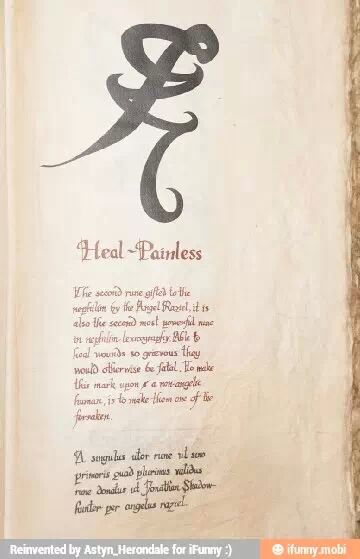 Heal-Painless
The second rune gifted to the
nephilim by the Angel Raziel, it is
also the second most powerful rune
in nephilim lexography. Able to
heal wounds so grevous they
would otherwise be fatal. To make
this mark upon a non-angelic
human, is to make them one of the
forsaken.
A singulus utor rune ut sino
primoris quad plurimus validus
rune donatus ut Jonathan Shadow-
hunter per angelus raziel.
Reinvented by Astyn_Herondale for iFunny :)
ifunny.mobi